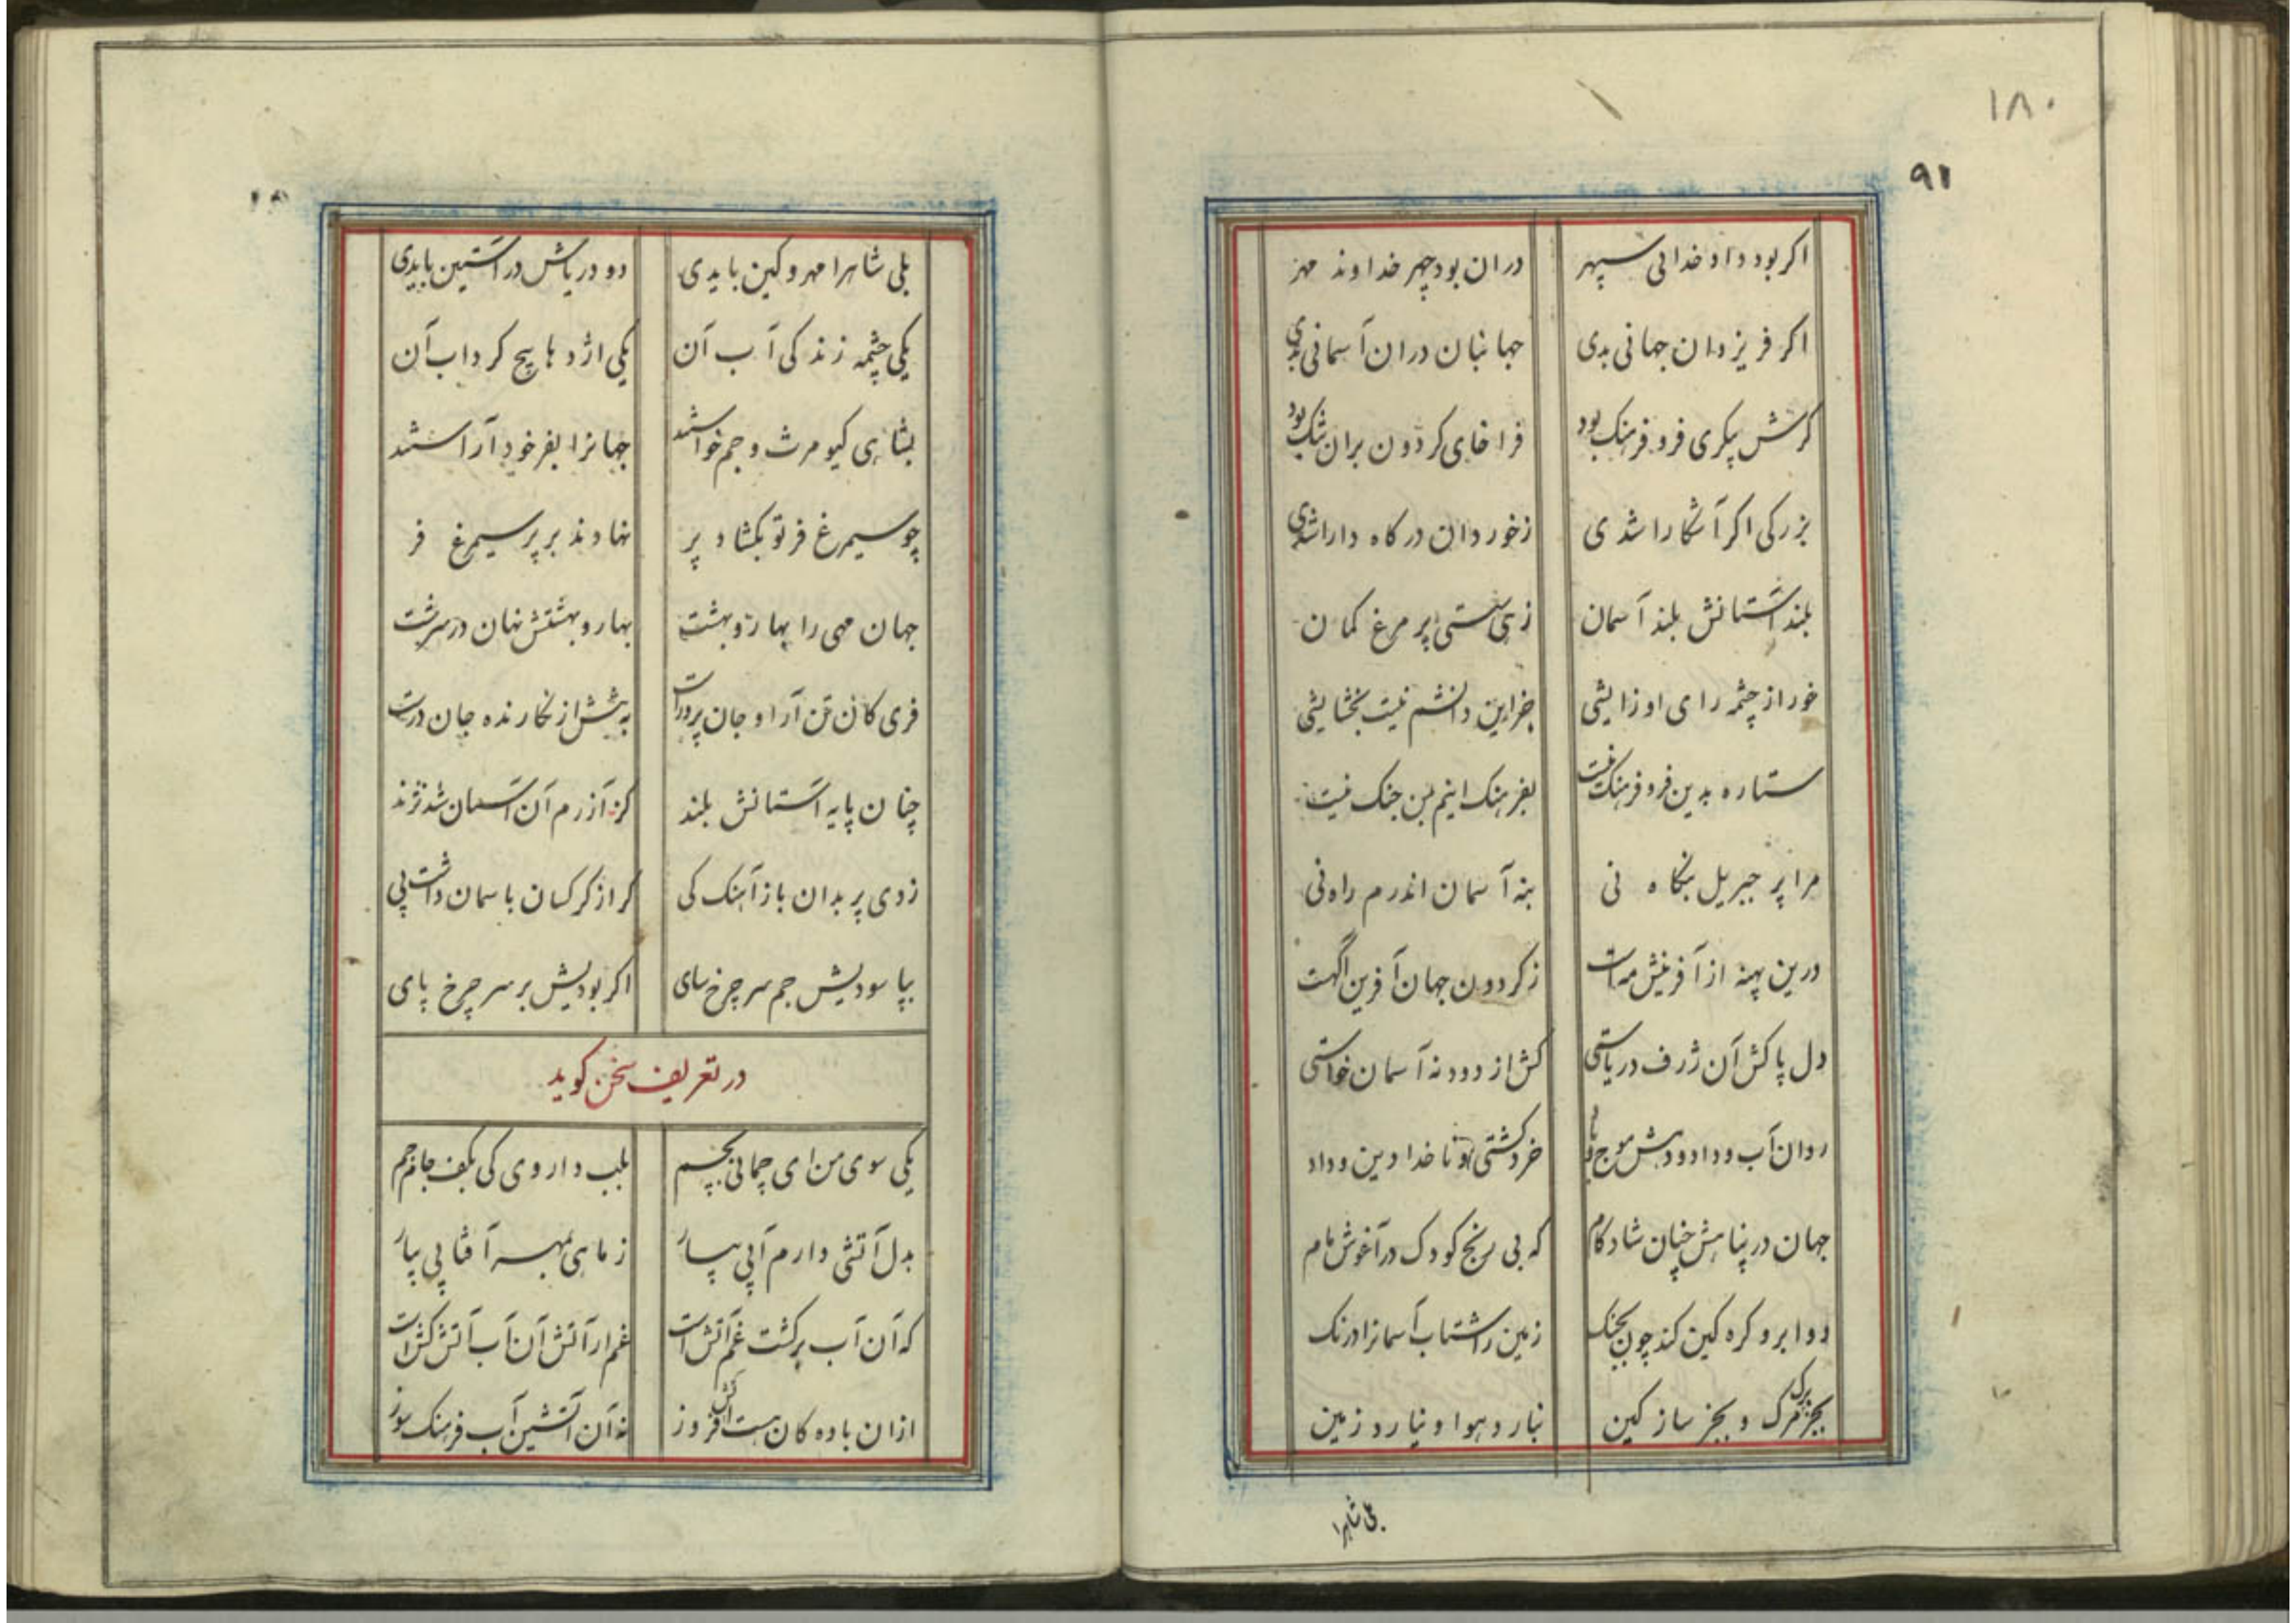 ۱۸۰
۹۱
اکر بود داد خدائی سپهر دران بود چهر خداوند مهر
اکر فر یزدان جهانی بدی جهانبان دران آسمانی بدی
کرش پیکری فر و فرهنک بود فراخای کردون بران تنک بود
بزرکی اکر آشکارا شدی ز خوردان درکاه دارا شدی
بلند آستانش بلند آسمان زهی سستی پر مرغ کمان
خور از چشمه رای او زایشی جز این دانشم نیست بخشایشی
ستاره بدین فر و فرهنک نیست بفرهنک اینم بمن جنک نیست
مرا پر جبریل بنکاه نی بنه آسمان اندرم راه نی
درین پهنه از آفرینش مه است ز کردون جهان آفرین آگهست
دل پاکش آن ژرف دریاستی کش از دود نه آسمان خواستی
روان آب و داد و دهش موج خرد کشتی و ناخدا دین و داد
جهان در پناهش چنان شادکام که بی رنج کودک در آغوش مام
دو ابرو کره کین کند چون بجنک زمین را شتاب آسمانرا درنک
بجز برک مرک و بجز ساز کین نبارد هوا و نیارد زمین
بلی شاهرا
بلی شاهرا مهر و کین بایدی دو دریاش در آستین بایدی
یکی چشمه زندکی آب آن یکی اژدها پیچ کرداب آن
بشاهی کیومرث و جم خواستند جهانرا بفر خود آراستند
چو سیمرغ فر تو بکشاد پر نهادند بر پر سیمرغ فر
جهان مهی را بهار و بهشت بهار و بهشتش نهان در سرشت
فری کان تن آرا و جان پرور است به پیشش از نکارنده جان درست
چنان پایه آستانش بلند کز آزرم آن آسمان شد نژند
زدی پر بدان باز آهنک کی کر از کرکسان باسمان داشت پی
بپا سودیش جم سر چرخ سای اکر بودیش بر سر چرخ پای
در تعریف سخن کوید
یکی سوی من ای چمانی بچم بلب داروی کی بکف جام جم
بدل آتشی دارم آبی بیار ز ماهی بمهر آفتابی بیار
که آن آب برکشت غم آتش است غم ار آتش آن آب آتش کش است
ازان باده کان هست آتش فروز نه آن آتشین آب فرهنک سوز